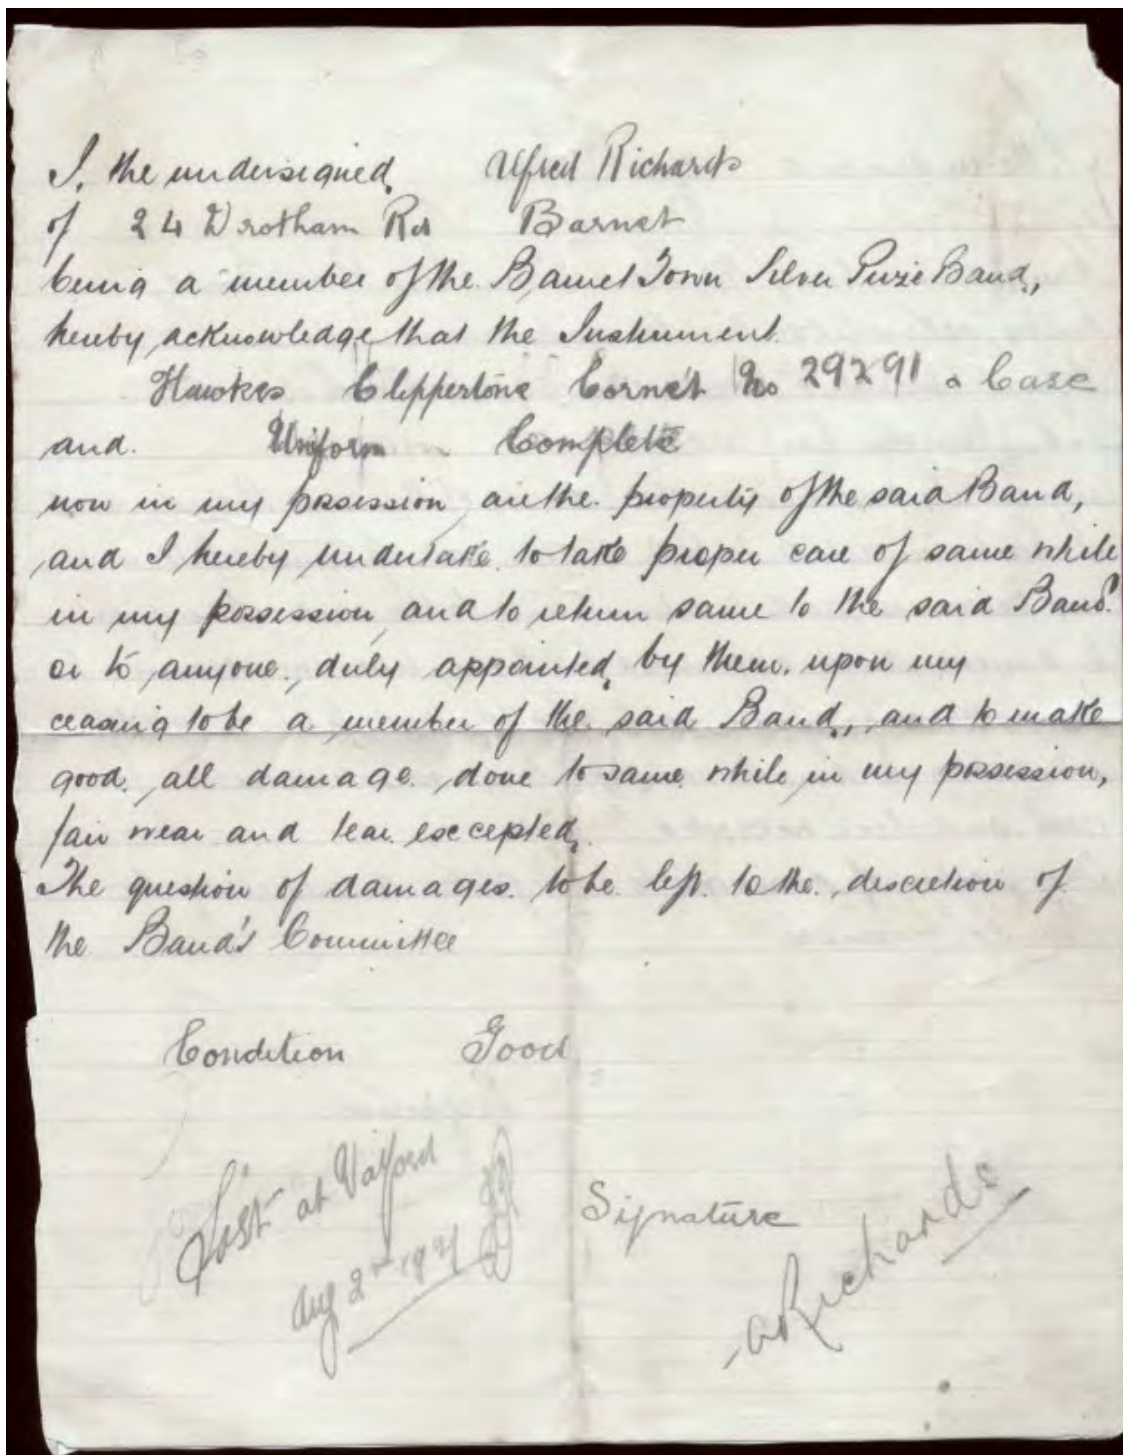 I, the undersigned, Alfred Richards
of 24 Wrotham Rd Barnet
being a member of the Barnet Town Silver Prize Band,
hereby acknowledge that the Instrument
Hawkes Clippertone Cornet No 29291 & Case
and Uniform Complete
now in my possession, are the property of the said Band,
and I hereby undertake to take proper care of same while
in my possession, and to return same to the said Band
or to anyone, duly appointed by them, upon my
ceasing to be a member of the said Band, and to make
good all damage done to same while in my possession,
fair wear and tear excepted.
The question of damages to be left to the discretion of
the Band's Committee
Condition Good
Lost at
Aug 2nd
Signature
A Richards